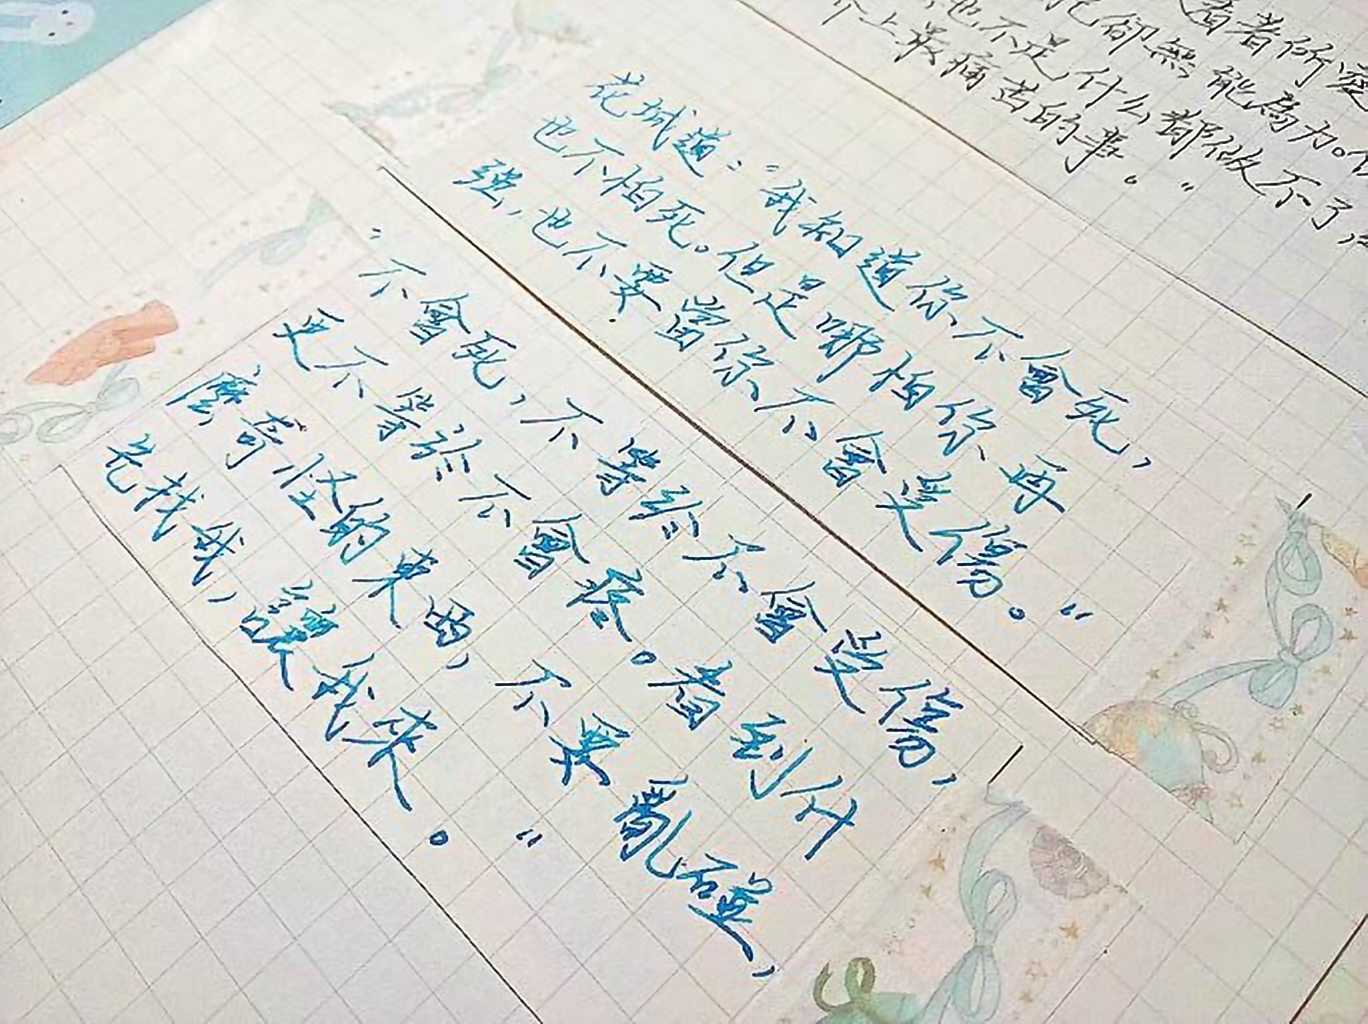 看着所愛
己卻無能為力。
也不是,什么都做不了,
界上最痛苦的事。”
花城道:“我知道你不會死,
也不怕死。但是哪怕你再
强,也不要當你不會受傷。”
“不會死,不等於不會受傷,
更不等於不會疼。看到什
麼奇怪的東西,不要亂碰,
先找我,讓我來。”